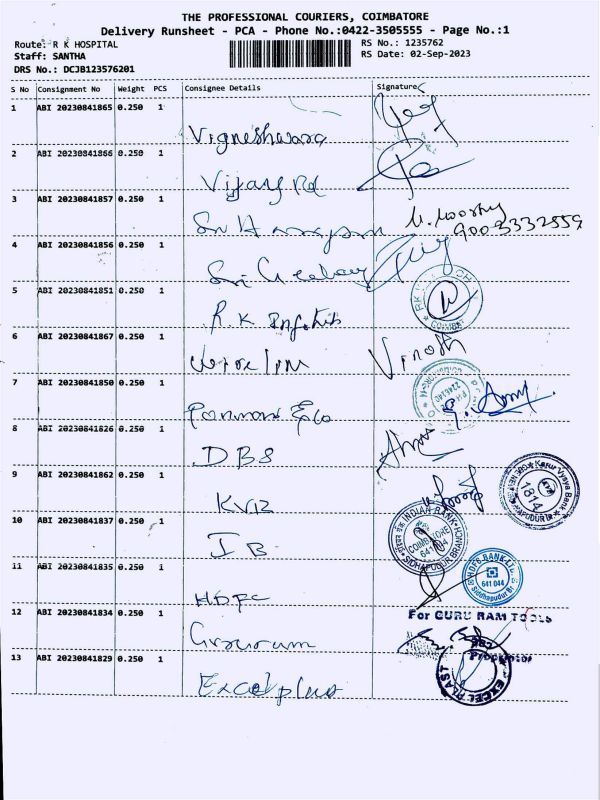 THE PROFESSIONAL COURIERS, COIMBATORE
Delivery Runsheet - PCA - Phone No.:0422-3505555 - Page No.:1
Route: R K HOSPITAL RS No.: 1235762
Staff: SANTHA RS Date: 02-Sep-2023
DRS No.: DCJB123576201
S No Consignment No Weight PCS Consignee Details Signature
1 ABI 20230841865 0.250 1
Vigneshwara
2 ABI 20230841866 0.250 1
Vijay Rd
3 ABI 20230841857 0.250 1
Sri
9003332559
4 ABI 20230841856 0.250 1
Sri
5 ABI 20230841851 0.250 1
R.K Infotech
6 ABI 20230841867 0.250 1
Vinoth
7 ABI 20230841850 0.250 1
8 ABI 20230841826 0.250 1
DBS
9 ABI 20230841862 0.250 1
KVB
Karur Vysya Bank
1814
10 ABI 20230841837 0.250 1
IB
INDIAN BANK
COIMBATORE
641 044
SIDHAPUDUR BRANCH
11 ABI 20230841835 0.250 1
HDFC
HDFC BANK LTD
641 044
Siddhapudur Br
12 ABI 20230841834 0.250 1
Gururam
For GURU RAM TOOLS
Proprietor
13 ABI 20230841829 0.250 1
Excelplast
EXCEL PLAST